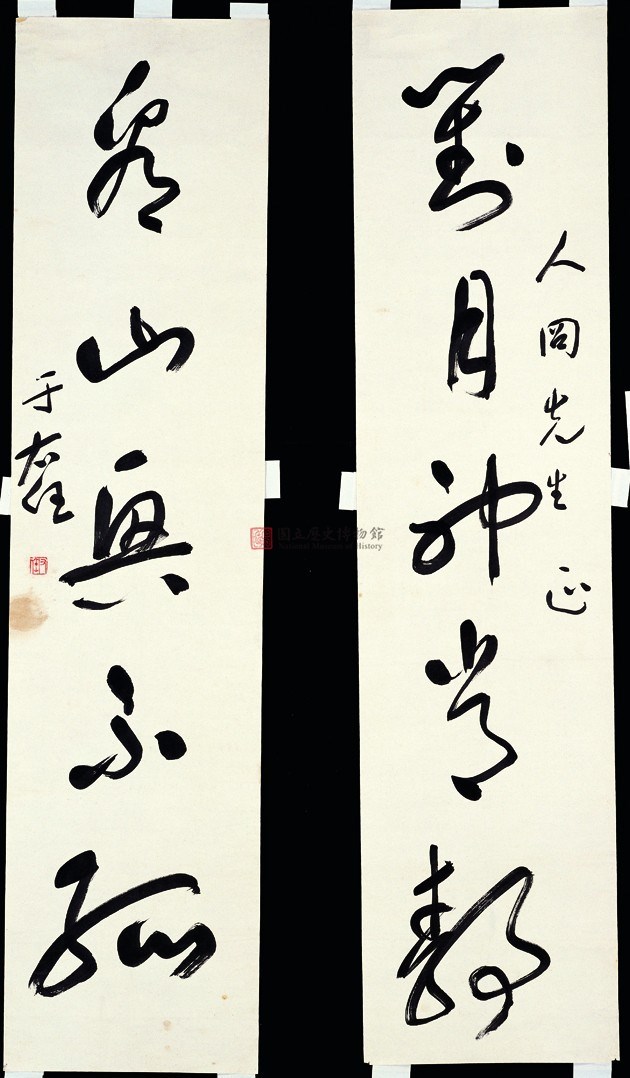 對月神常靜
人岡先生 正
看山興不孤
于右任
國立歷史博物館
National Museum of History